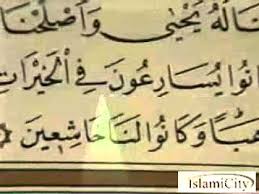 نَا لَهُ يَحْيَىٰ وَأَصْلَحْنَا
انُوا يُسَارِعُونَ فِي الْخَيْرَاتِ
هَبًا وَكَانُوا لَنَا خَاشِعِينَ
IslamiCity